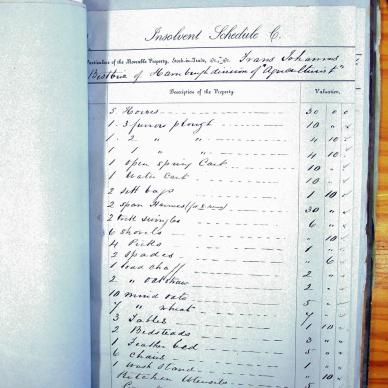 Insolvent Schedule C.
Particulars of the Moveable Property, Stock-in-Trade, &c., &c. Frans Johannes
of Hamburgh division of "Agriculturist"
Description of the Property Valuation.
5 Horses 30 " "
1 . 3 furrow plough 10 " "
1 . 2 " " 4 10 "
1 1 " " 4 10 "
1 open spring Cart 10 " "
1 Water Cart 10 " "
2 bags 1 10 "
2 Span Harness 30 " "
2 swingles 6 " "
6 Shovels " 10 "
4 Picks 1 " "
2 Spades " 6 "
1 load chaff 2 " "
2 " oat straw 2 " "
10 muid oats 5 " "
7 " wheat 7 " "
3 Tables 1 10 "
2 Bedsteads 3 " "
1 Feather bed 5 " "
6 Chairs 1 " "
1 Wash Stand " 10 "
Kitchen Utensils 5